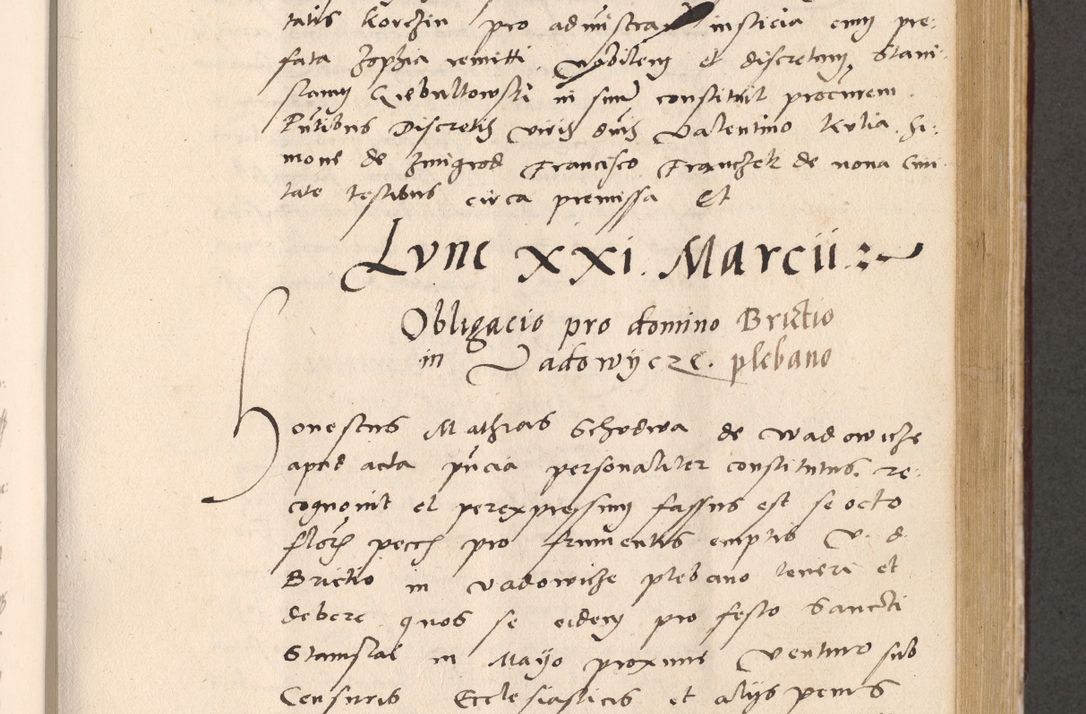 tatis Korczin pro administran iusticia cum pre:
fata Zophia remitti. Nobilem et discretum Stani-
slaum Giebultowski in suum constituit procurem
Pntibus Discretis viris dnis Valentino Kulia. Si:
mone de Zmigrod Francisco Franczek de nona Civi
tate testibus circa premissa Et
Lune XXI. Marcii
Obligacio pro domino Brictio
in Vadowycze. plebano
Honestus Mathias Schudwa de Wadowicze
apud acta pncia personaliter constitutus. re:
cognovit et per expressum fassus est se octo
floros pecc pro frumentis emptis V. d.
Brictio in Vadowicze plebano tenere et
debere quos se eidem pro festo Sancti
Stanislai in Mayo proxime venturo sub
Censuris Ecclesiasticis et alijs penis